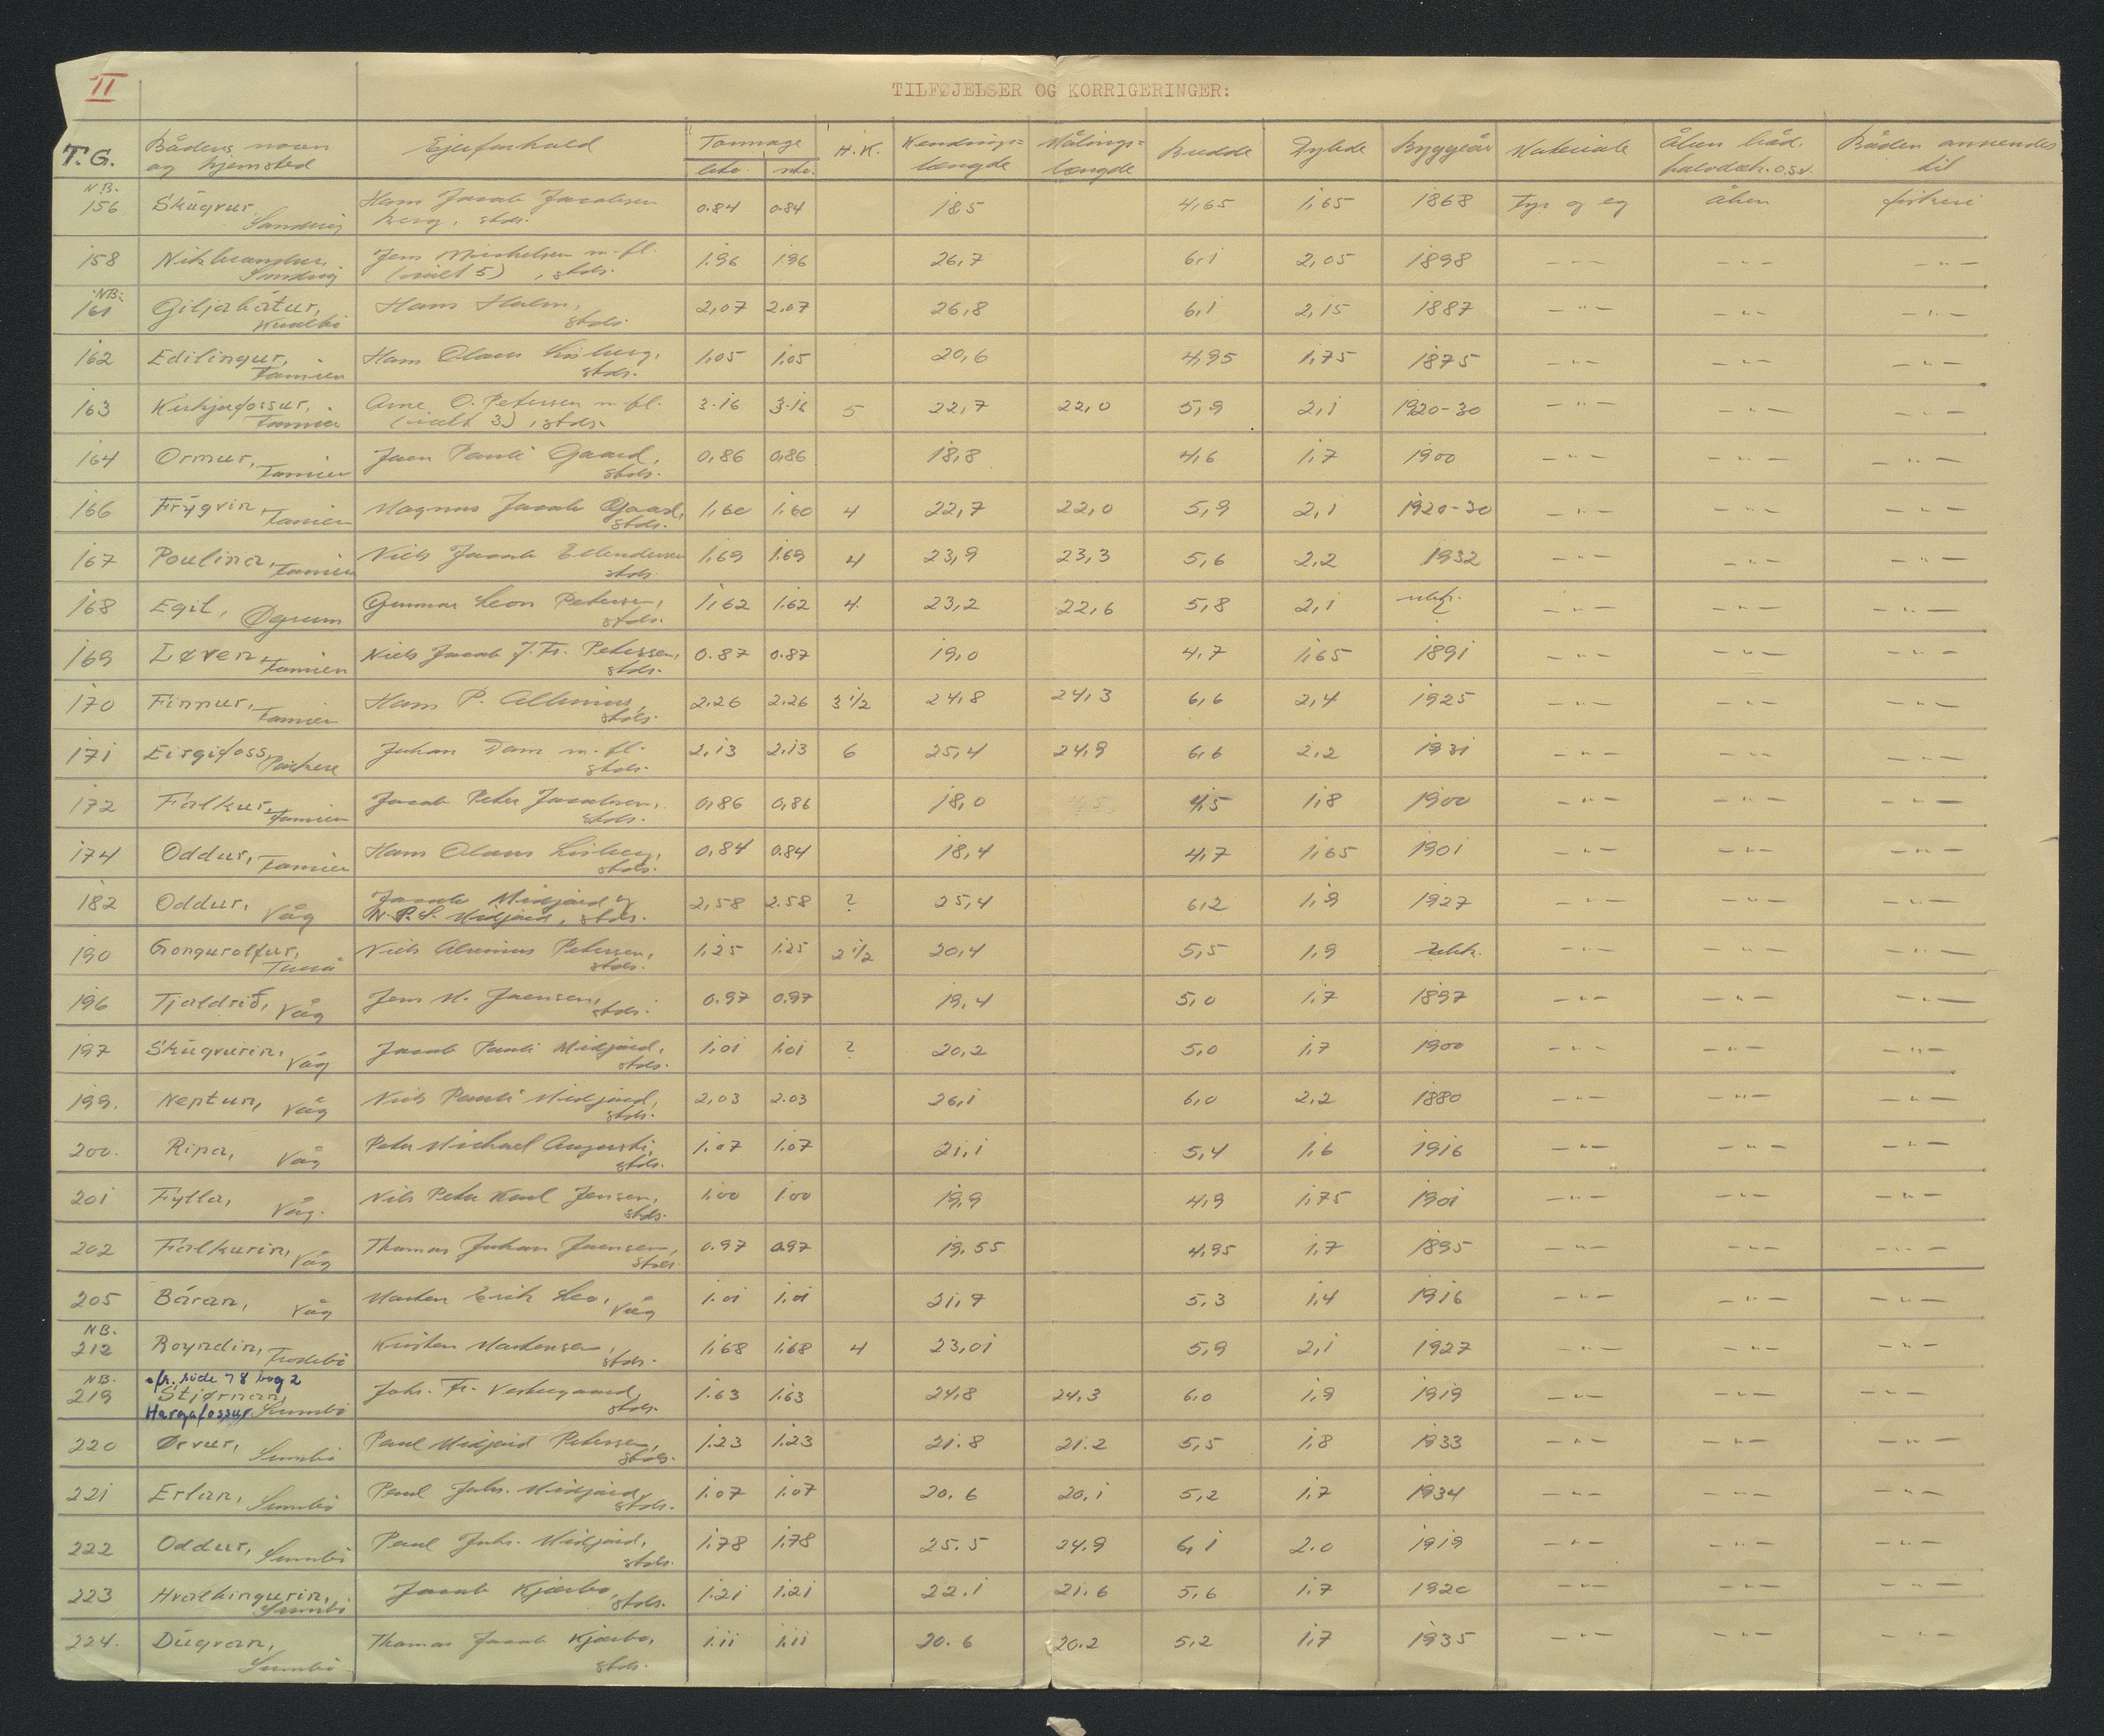 II
TILFØJELSER OG KORRIGERINGER:
T.G. Bådens navn og hjemsted Ejerforhold Tonnage bto. nto. H.K. Kendings= længde Målings= længde Bredde Dybde Byggeår Materiale Åben båd, halvdæk. o.s.v. Båden anvendes til
NB. 156 Skúgvur, Sandvig Hans Jacob Jacobsen Berg, stds. 0.84 0.84 18,5 4,65 1,65 1868 Fyr og eg åben fiskeri
158 Sandvig Jens Michelsen m. fl. (ialt 5), stds. 1.96 1.96 26,7 6,1 2,05 1898 - " - - " - - " -
NB: 161 Giljabátur, Hvalbö Hans Holm, stds. 2,07 2.07 26,8 6,1 2,15 1887 - " - - " - - " -
162 Edilingur, Famien Hans Olaus Lisberg, stds. 1,05 1.05 20,6 4,95 1,75 1875 - " - - " - - " -
163 Kirkjufossur, Famien Arne O. Petersen m. fl. (ialt 3), stds. 3.16 3.16 5 22,7 22,0 5,9 2,1 1920-30 - " - - " - - " -
164 Ormur, Famien Joen Pauli Gaard, stds. 0,86 0,86 18,8 4,6 1,7 1900 - " - - " - - " -
166 Frýgvin, Famien Magnus Jacob Gaard, stds. 1,60 1.60 4 22,7 22,0 5,9 2,1 1920-30 - " - - " - - " -
167 Poulina, Famien Niels Jacob Ellendersen stds. 1,69 1.69 4 23,9 23,3 5,6 2,2 1932 - " - - " - - " -
168 Egil, Øgrum Gunnar Leon Petersen, stds. 1,62 1.62 4. 23,2 22,6 5,8 2,1 ubk. - " - - " - - " -
169 Løven, Famien Niels Jacob J. Fr. Petersen, stds. 0.87 0.87 19,0 4,7 1,65 1891 - " - - " - - " -
170 Finnur, Famien Hans P. stds. 2.26 2.26 3 1/2 24,8 24,3 6,6 2,4 1925 - " - - " - - " -
171 Eirgifoss, Porkere Johan Dam m. fl. stds. 2,13 2,13 6 25,4 24,9 6,6 2,2 1931 - " - - " - - " -
172 Falkur, Famien Jacob Peter Jacobsen, stds. 0,86 0,86 18,0 4,5 1,8 1900 - " - - " - - " -
174 Oddur, Famien Hans Olaus Lisberg, stds. 0,84 0.84 18,4 4,7 1,65 1901 - " - - " - - " -
182 Oddur, Våg Jacob Midjord og N. P. S. Midjord, stds. 2,58 2.58 ? 25,4 6,2 1,9 1927 - " - - " - - " -
190 Gongurolfur, Niels Petersen, stds. 1,25 1.25 2 1/2 20,4 5,5 1,9 ubk. - " - - " - - " -
196 Tjaldrið, Våg Jens M. Joensen, stds. 0.97 0.97 19,4 5,0 1.7 1897 - " - - " - - " -
197 Skúgvurin, Våg Jacob Pauli Midjord, stds. 1,01 1,01 ? 20,2 5,0 1,7 1900 - " - - " - - " -
199. Neptun, Våg Niels Pauli Midjord, stds. 2,03 2.03 26,1 6,0 2,2 1880 - " - - " - - " -
200. Ripa, Våg Peter Michael Augusti, stds. 1.07 1.07 21,1 5,4 1,6 1916 - " - - " - - " -
201 Fylla, Våg. Niels Peter Karl Jensen, stds. 1.00 1.00 19,9 4,9 1,75 1901 - " - - " - - " -
202 Falkurin, Våg Thomas Johan Joensen, stds. 0.97 0.97 19,55 4,95 1.7 1895 - " - - " - - " -
205 Báran, Våg Morten Erik Leo, Våg 1.01 1.01 21,7 5,3 1,4 1916 - " - - " - - " -
NB. 212 Royndin, Frodebö Kristen Mortensen, stds. 1,68 1,68 4 23,01 5,9 2,1 1927 - " - - " -
NB. 219 fr. side 78 bog 2 Stjørnan, Hargafossur Sumbö Johs. Fr. Vestergaard, stds. 1.63 1.63 24,8 24,3 6,0 1,9 1919 - " - - " - - " -
220 Ørvur, Sumbö Paul Midjord Petersen, stds. 1.23 1.23 21.8 21.2 5,5 1,8 1933 - " - - " - - " -
221 Erlan, Sumbö Paul Johs. Midjord, stds. 1.07 1.07 20.6 20.1 5,2 1.7 1934 - " - - " - - " -
222 Oddur, Sumbö Paul Johs. Midjord, stds. 1.78 1.78 25.5 24.9 6,1 2.0 1919 - " - - " - - " -
223 Hvalkingurin, Sumbö Jacob Kjærbo, stds. 1.21 1.21 22.1 21.6 5,6 1.7 1920 - " - - " - - " -
224. Dúgvan, Sumbö Thomas Jacob Kjærbo, stds. 1.11 1.11 20.6 20.2 5,2 1,7 1935 - " - - " - - " -